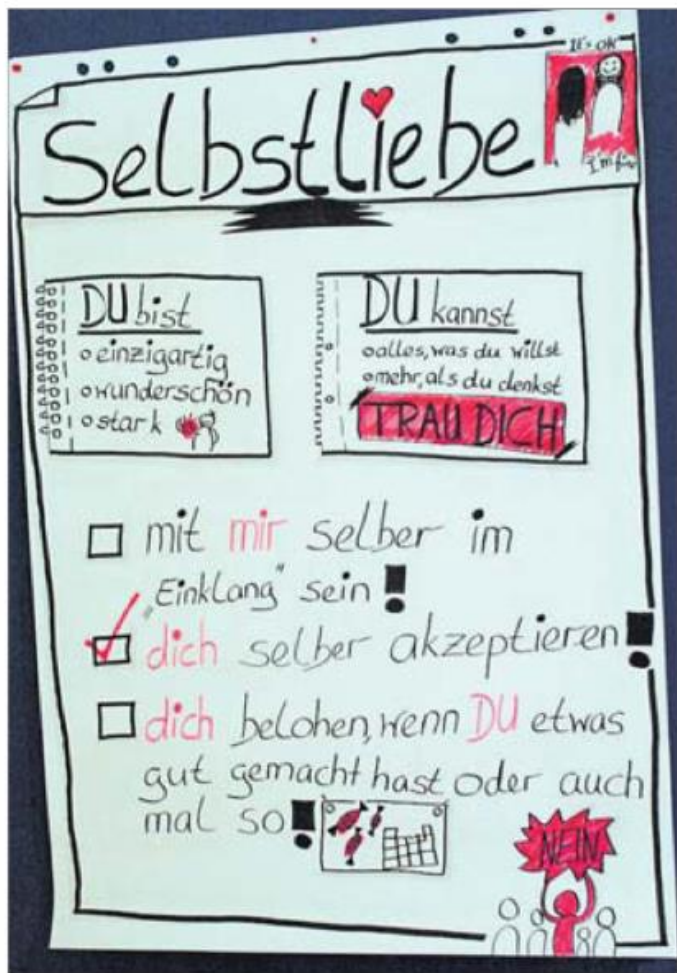 It's OK
Selbstliebe
I'm fine
DU bist
einzigartig
wunderschön
stark
DU kannst
alles, was du willst
mehr, als du denkst
TRAU DICH
mit mir selber im
„Einklang“ sein!
dich selber akzeptieren!
dich belohen, wenn DU etwas
gut gemacht hast oder auch
mal so!
NEIN